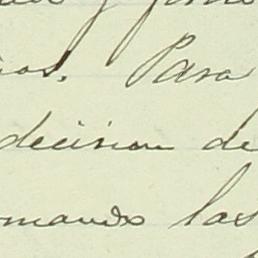 y
ios. Para
decision de
omando las